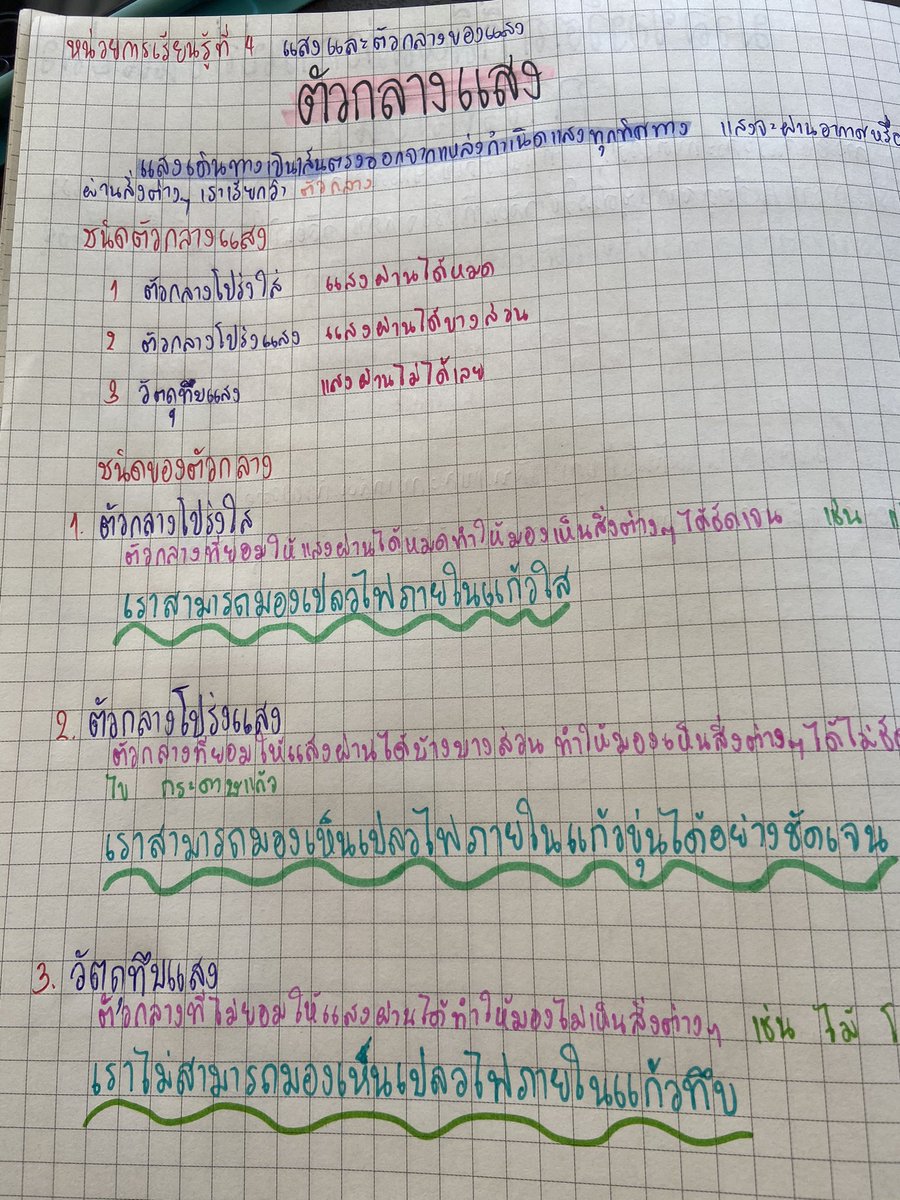 หน่วยการเรียนรู้ที่ 4 แสงและตัวกลางของแสง
ตัวกลางแสง
แสงเดินทางเป็นเส้นตรงออกจากแหล่งกำเนิดแสงทุกทิศทาง แสงจะผ่านอากาศหรือ
ผ่านสิ่งต่างๆ เราเรียกว่า ตัวกลาง
ชนิดตัวกลางแสง
1 ตัวกลางโปร่งใส แสงผ่านได้หมด
2 ตัวกลางโปร่งแสง แสงผ่านได้บางส่วน
3 วัตถุทึบแสง แสงผ่านไม่ได้เลย
ชนิดของตัวกลาง
1. ตัวกลางโปร่งใส
ตัวกลางที่ยอมให้แสงผ่านได้หมดทำให้มองเห็นสิ่งต่างๆ ได้ชัดเจน เช่น
เราสามารถมองเปลวไฟภายในแก้วใส
2. ตัวกลางโปร่งแสง
ตัวกลางที่ยอมให้แสงผ่านได้บ้างบางส่วน ทำให้มองเห็นสิ่งต่างๆ ได้ไม่ชัด
ไข กระดาษแก้ว
เราสามารถมองเห็นเปลวไฟภายในแก้วขุ่นได้อย่างชัดเจน
3. วัตถุทึบแสง
ตัวกลางที่ไม่ยอมให้แสงผ่านได้ทำให้มองไม่เห็นสิ่งต่างๆ เช่น ไม้
เราไม่สามารถมองเห็นเปลวไฟภายในแก้วทึบ